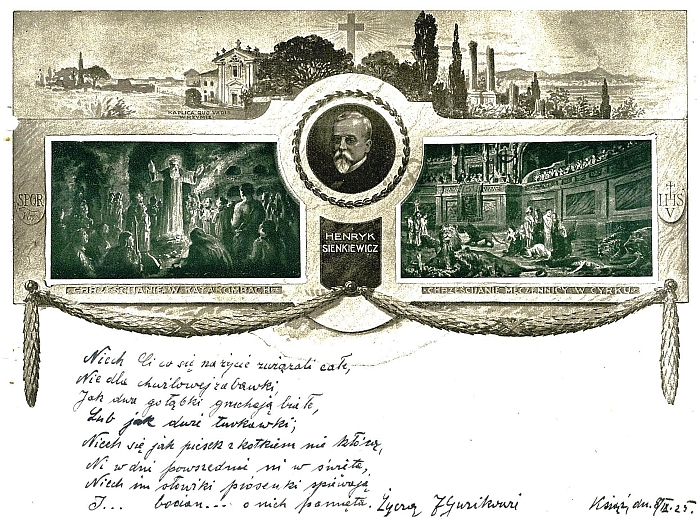 KAPLICA QUO VADIS
W RZYMIE
SPQR
IHS
V
HENRYK
SIENKIEWICZ
CHRZEŚCIJANIE W KATAKOMBACH
CHRZEŚCIJANIE MĘCZENNICY W CYRKU
Niech Ci co się na życie związali całe,
Nie dla chwilowej zabawki,
Jak dwa gołąbki gruchają białe,
Lub jak dwie turkawki;
Niech się jak piesek z kotkiem nie kłócą,
Ni w dni powszednie ni w święta,
Niech im słowiki piosenki śpiewają
I... bocian... o nich pamięta. Życzą
dn. 8/IX.25.